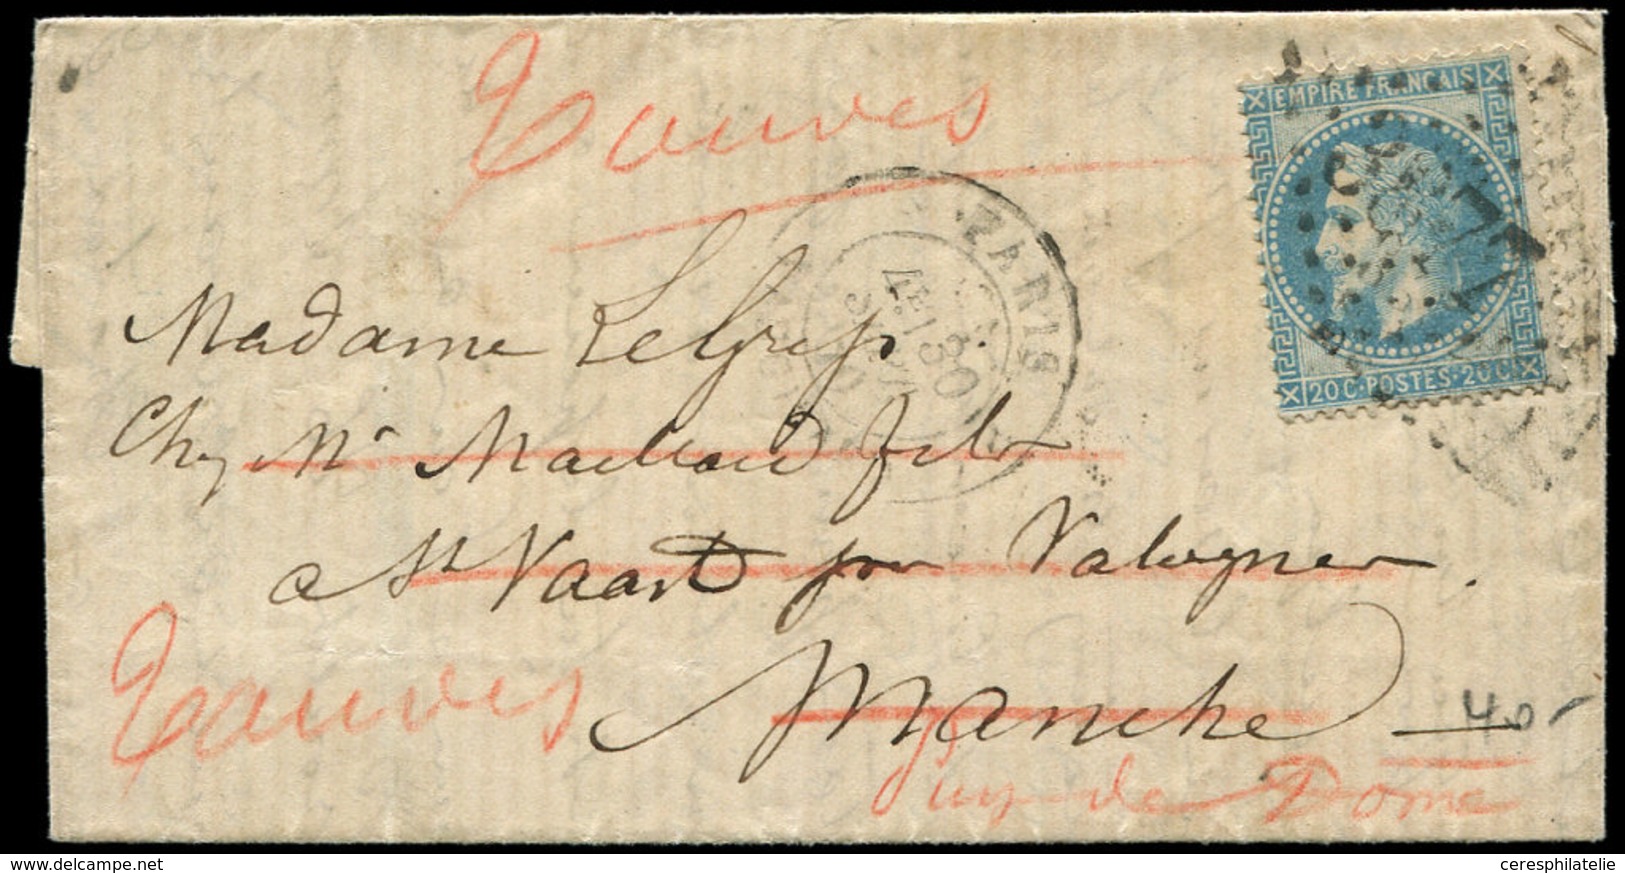 Tauves
EMPIRE FRANCAIS
20 C · POSTES · 20 C
PARIS
30
Madame LeGrip
Chez Mr Maillard fils
a St Vaast par Valognes.
Tauves
Manche
40-
Puy de Dome
www.delcampe.net
ceresphilatelie